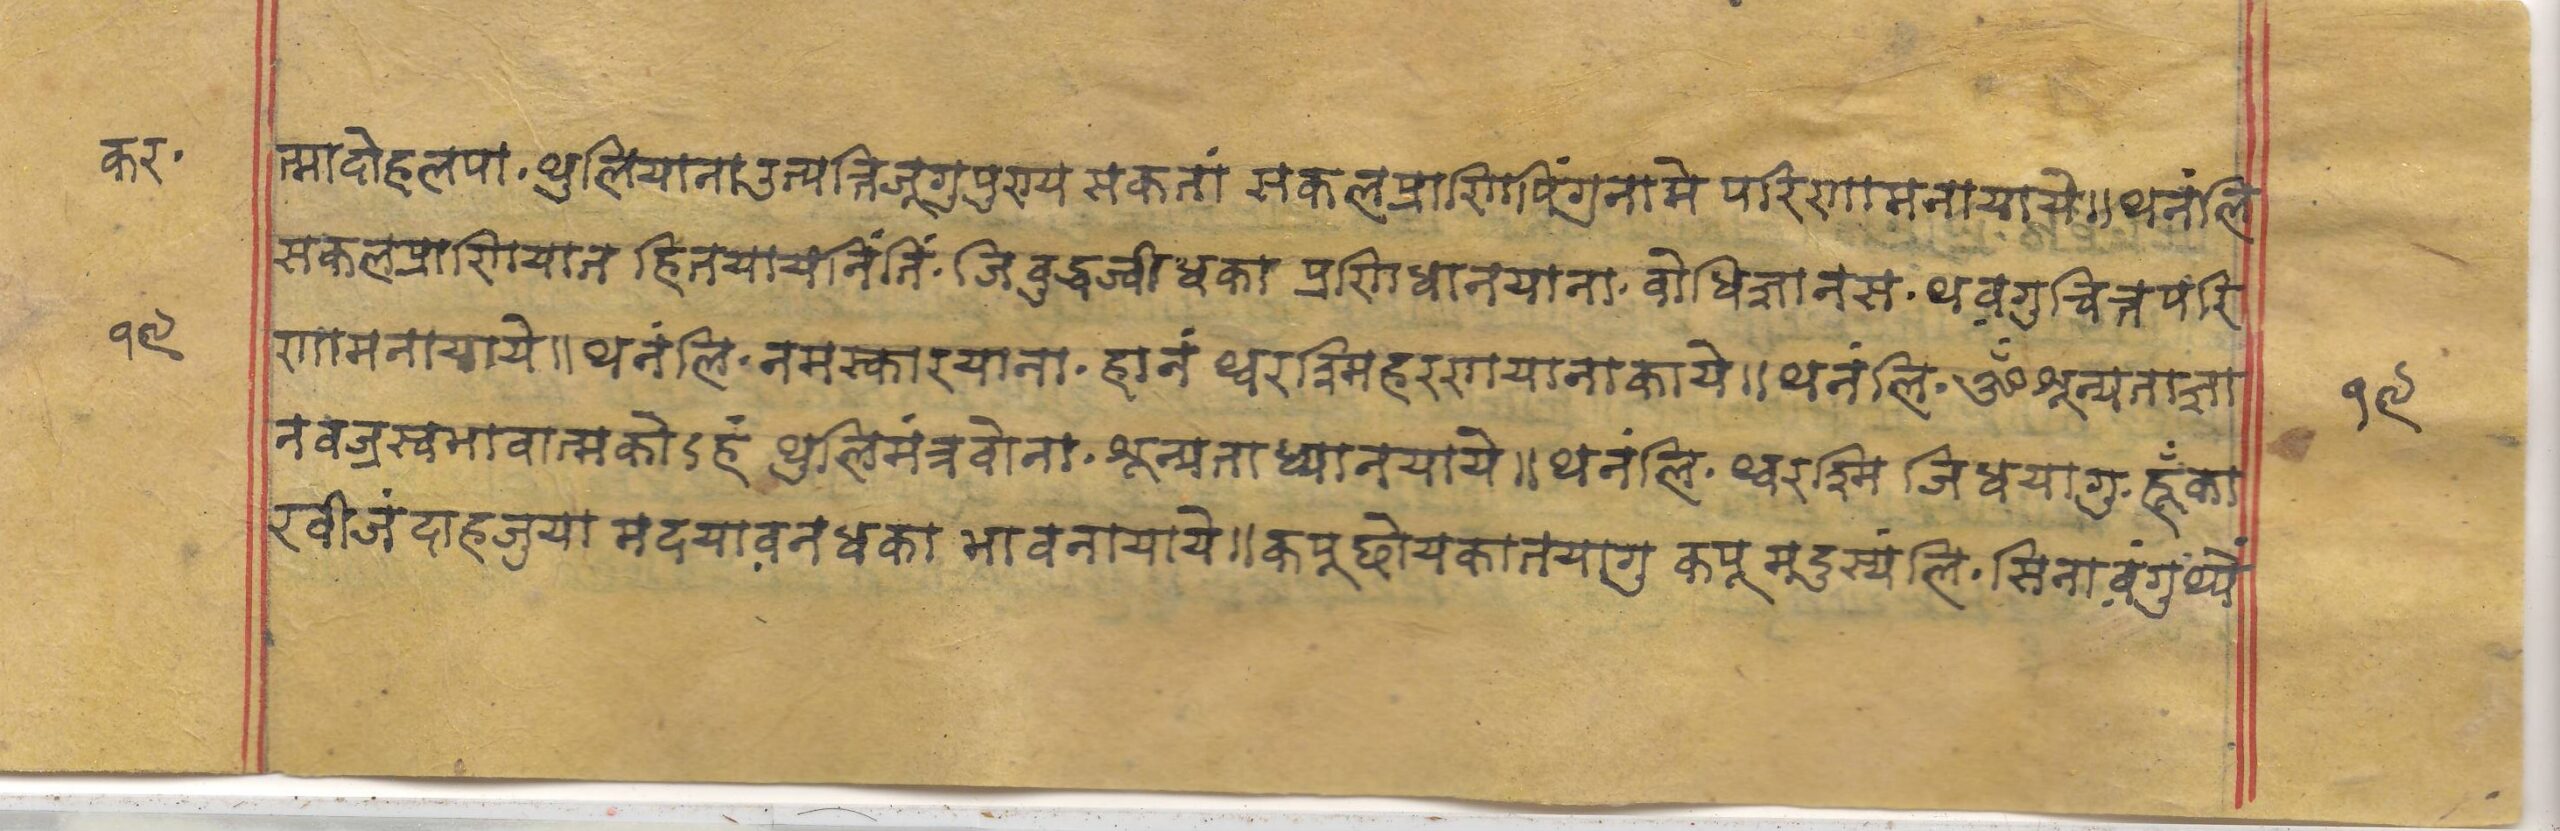 कर.
त्मादोहलपा. थुलियाना उत्पत्तिजूगुपुण्य सकतां सकलप्राणिपिंग्रनामे परिणामनायाये॥ थनंलि
सकलप्राणियात हितयायेनिंतिं. जि बुद्धज्वीधका प्रणिधानयाना. बोधिज्ञानस. थव़गुचित्तपरि
१९
णामनायाये॥ थनंलि. नमस्कारयाना. हानं थ्वरश्मिहरणयानाकाये॥ थनंलि. ॐ शून्यताज्ञा
१९
नवज्रस्वभावात्मकोऽहं थुलिमंत्रबोना. शून्यताध्यानयाये॥ थनंलि. थ्वरश्मि जिध्वयागु. हूँका
रबीजं दाहजुया मदयाव़नधका भावनायाये॥ कपूछोयकातयागु कपू मूदुस्यंलि. सिनाव़ंगुथ्यें